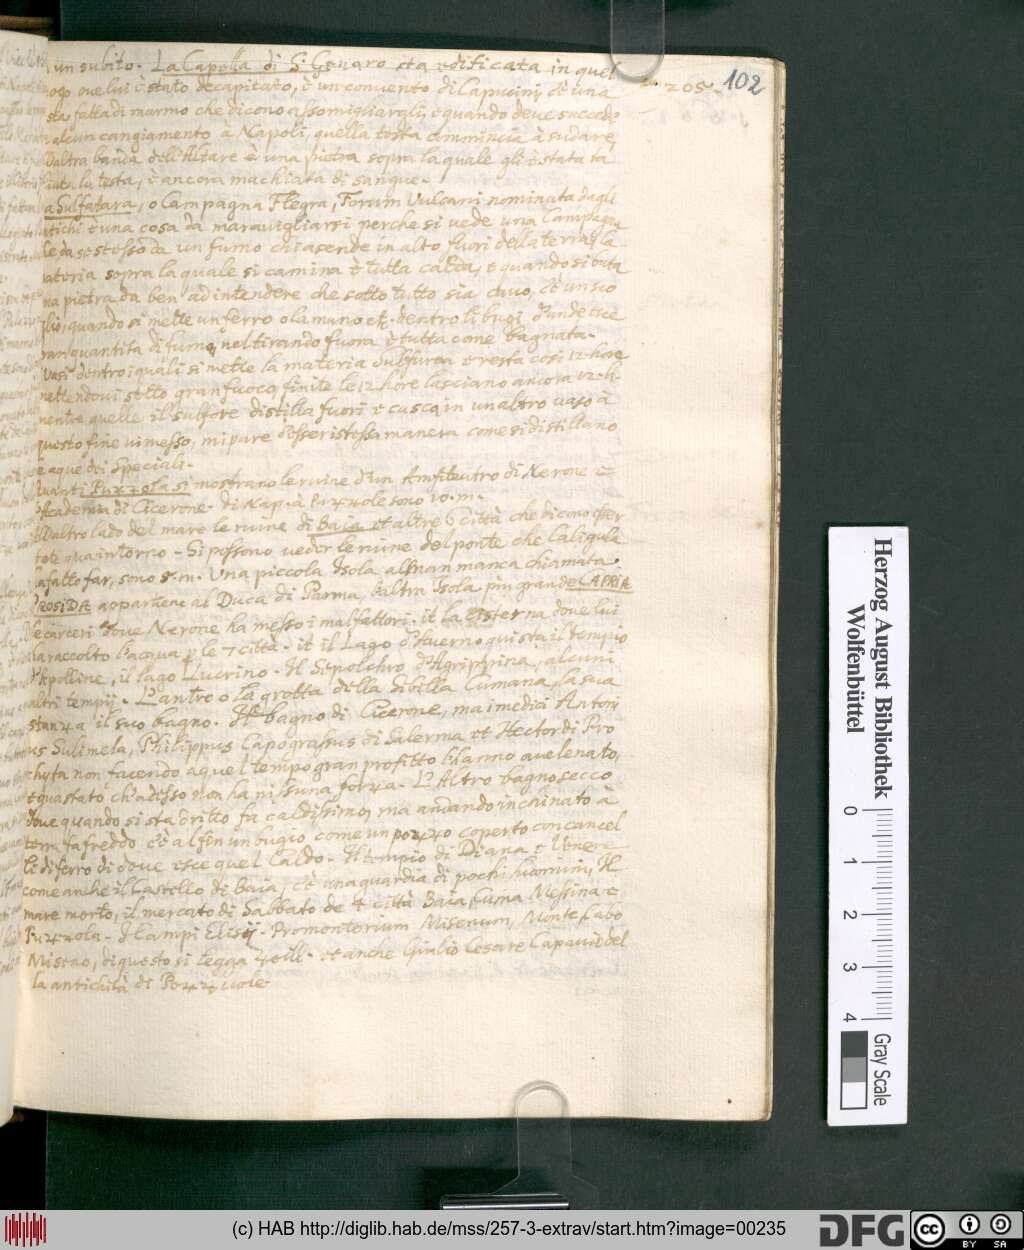 un subito. La Capella di S: Genaro sta edificata in quel
205. 102
ogo ove lui è stato decapitato, è un convento di Capucini c'è una
sta fatta di marmo che dicono assomigliargli, e quando deve succede
alcun cangiamento à Napoli, quella testa commincia à sudare
D'altra banda dell'Altare è una pietra sopra la quale gli è stata ta
liata la testa, è ancora machiata di sangue.
a Sulfatara, o Campagna Flegra, Forum Vulcani nominata dagli
antichi è una cosa da maravigliarsi perche si vede una Campagna
che da se stesso dà un fumo ch'asende in alto fuori della terra, la
materia sopra la quale si camina è tutta calda, e quando si
na pietra dà ben' ad intendere che sotto tutto sia cavo, c'è un
quando si mette un ferro o la mano etc. dentro li bugi d'unde esce
gran quantita di fumo, nel tirando fuora è tutta come bagnata.
Vasi dentro i quali si mette la materia sulfurea e resta cosi 12 hore
mettendovi sotto gran fuoco, finite le 12 hore lasciano ancora 12 h-
mentre quelle il sulfore distilla fuori e casca in un altro vaso à
questo fine vi messo, mi pare d'esser istessa manera come si distillano
e aque dei Speciali.
avanti Puzzola si mostrano le ruine d'un Amfiteatro di Nerone e
Academia di Cicerone. di Nap. à Puzzole sono 10. m.
D'altro lado del mare le ruine di Baia et altre 6 città che dicono esser
state qua intorno - Si possono veder le ruine del ponte che Caligula
a fatto far, sono 3. m. Una piccola Isola al man manca chiamata
PROSIDA appartiene al Duca di Parma, l'altra Isola più grande CAPRIA
le carceri dove Nerone ha messo i malfattori. it la cisterna dove lui
ha raccolto l'acqua p le 7 città. it il Lago d'Averno qui sta il tempio
d'Apolline, il lago Lucrino. Il Sepolchro d'Agriphina, alcuni
altri tempij. L'antro o la grotta della Sibilla Cumana, la sua
stanza il suo bagno. Il bagno di Cicerone, ma i medici Anton
us Sulimela, Philippus Capograssus di Salerma et Hector di Pro
chyta non facendo aquel tempo gran profitto l'hanno avelenato,
e guastato, ch'adesso non ha nissuna forza. L'Altro bagno secco
dove quando si sta dritto fa caldissimo, ma andando inchinato à
terra fa freddo c'è al fin un bugio come un pozzo coperto con cancel
li di ferro di dove esce quel caldo. Il tempio di Diana e Venere
come anche il Castello di Baia, c'è una guardia di pochi huomini, Il
mare morto, il mercato di Sabbato de 4 città Baia, Cuma Messina e
Puzzola. I Campi Elisij. Promontorium Misenum, Monte Cabo
Miseno, di questo si legga Zeill. et anche Giulio Cesare Capaccio del
la antichità di Pozzuole
Herzog August Bibliothek
Wolfenbüttel
0 1 2 3 4
Gray Scale
(c) HAB http://diglib.hab.de/mss/257-3-extrav/start.htm?image=00235
DFG
cc BY SA